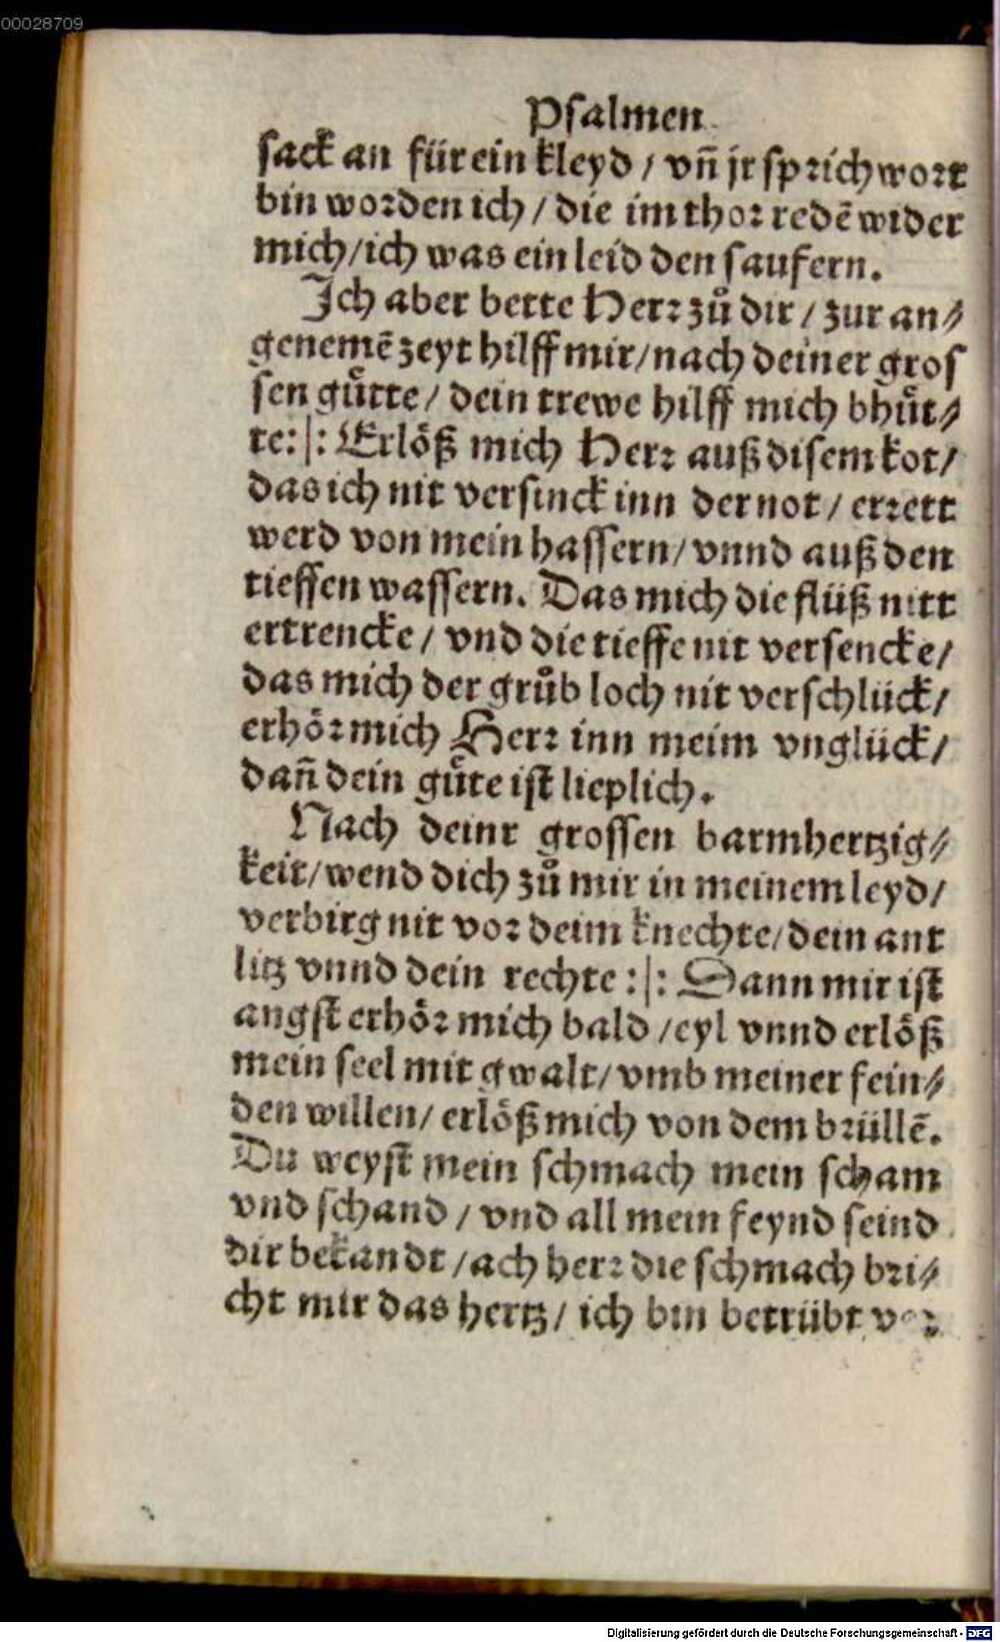 00028709
Psalmen
sack an für ein kleyd / vñ jr sprichwort
bin worden ich / die im thor redē wider
mich / ich was ein leid den saufern.
Ich aber bette Herr zů dir / zur an⸗
genemē zeyt hilff mir / nach deiner gros
sen gůtte / dein trewe hilff mich bhůt⸗
te :|: Erlöß mich Herr auß disem kot /
das ich nit versinck inn der not / errett
werd von mein hassern / vnnd auß den
tieffen wassern. Das mich die flüß nitt
ertrencke / vnd die tieffe nit versencke /
das mich der grůb loch nit verschlück /
erhör mich Herr inn meim vnglück /
dañ dein gůte ist lieplich.
Nach deinr grossen barmhertzig⸗
keit / wend dich zů mir in meinem leyd /
verbirg nit vor deim knechte / dein ant
litz vnnd dein rechte :|: Dann mir ist
angst erhör mich bald / eyl vnnd erlöß
mein seel mit gwalt / vmb meiner fein⸗
den willen / erlöß mich von dem brüllē.
Du weyst mein schmach mein scham
vnd schand / vnd all mein feynd seind
dir bekandt / ach herr die schmach bri⸗
cht mir das hertz / ich bin betrübt vor
Digitalisierung gefördert durch die Deutsche Forschungsgemeinschaft - DFG